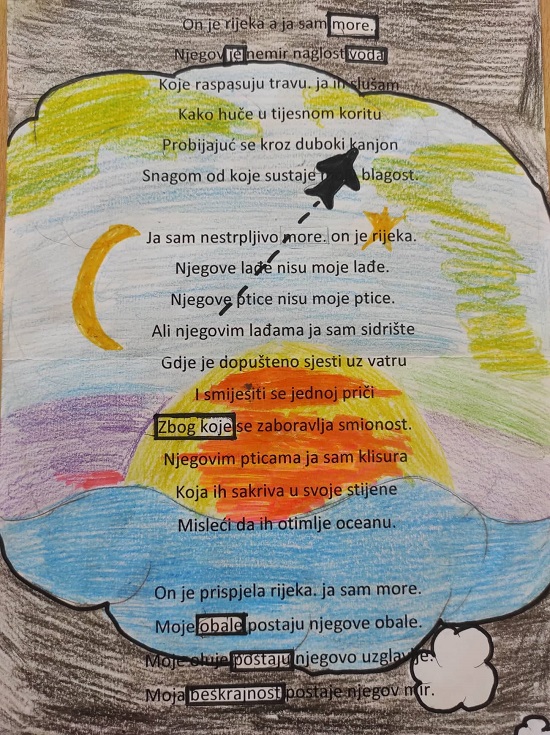 On je rijeka a ja sam more.
Njegov je nemir naglost voda
Koje raspasuju travu. ja ih slušam
Kako huče u tijesnom koritu
Probijajuć se kroz duboki kanjon
Snagom od koje sustaje blagost.
Ja sam nestrpljivo more. on je rijeka.
Njegove lađe nisu moje lađe.
Njegove ptice nisu moje ptice.
Ali njegovim lađama ja sam sidrište
Gdje je dopušteno sjesti uz vatru
I smiješiti se jednoj priči
Zbog koje se zaboravlja smionost.
Njegovim pticama ja sam klisura
Koja ih sakriva u svoje stijene
Misleći da ih otimlje oceanu.
On je prispjela rijeka. ja sam more.
Moje obale postaju njegove obale.
Moje oluje postaju njegovo uzglavlje.
Moja beskrajnost postaje njegov mir.